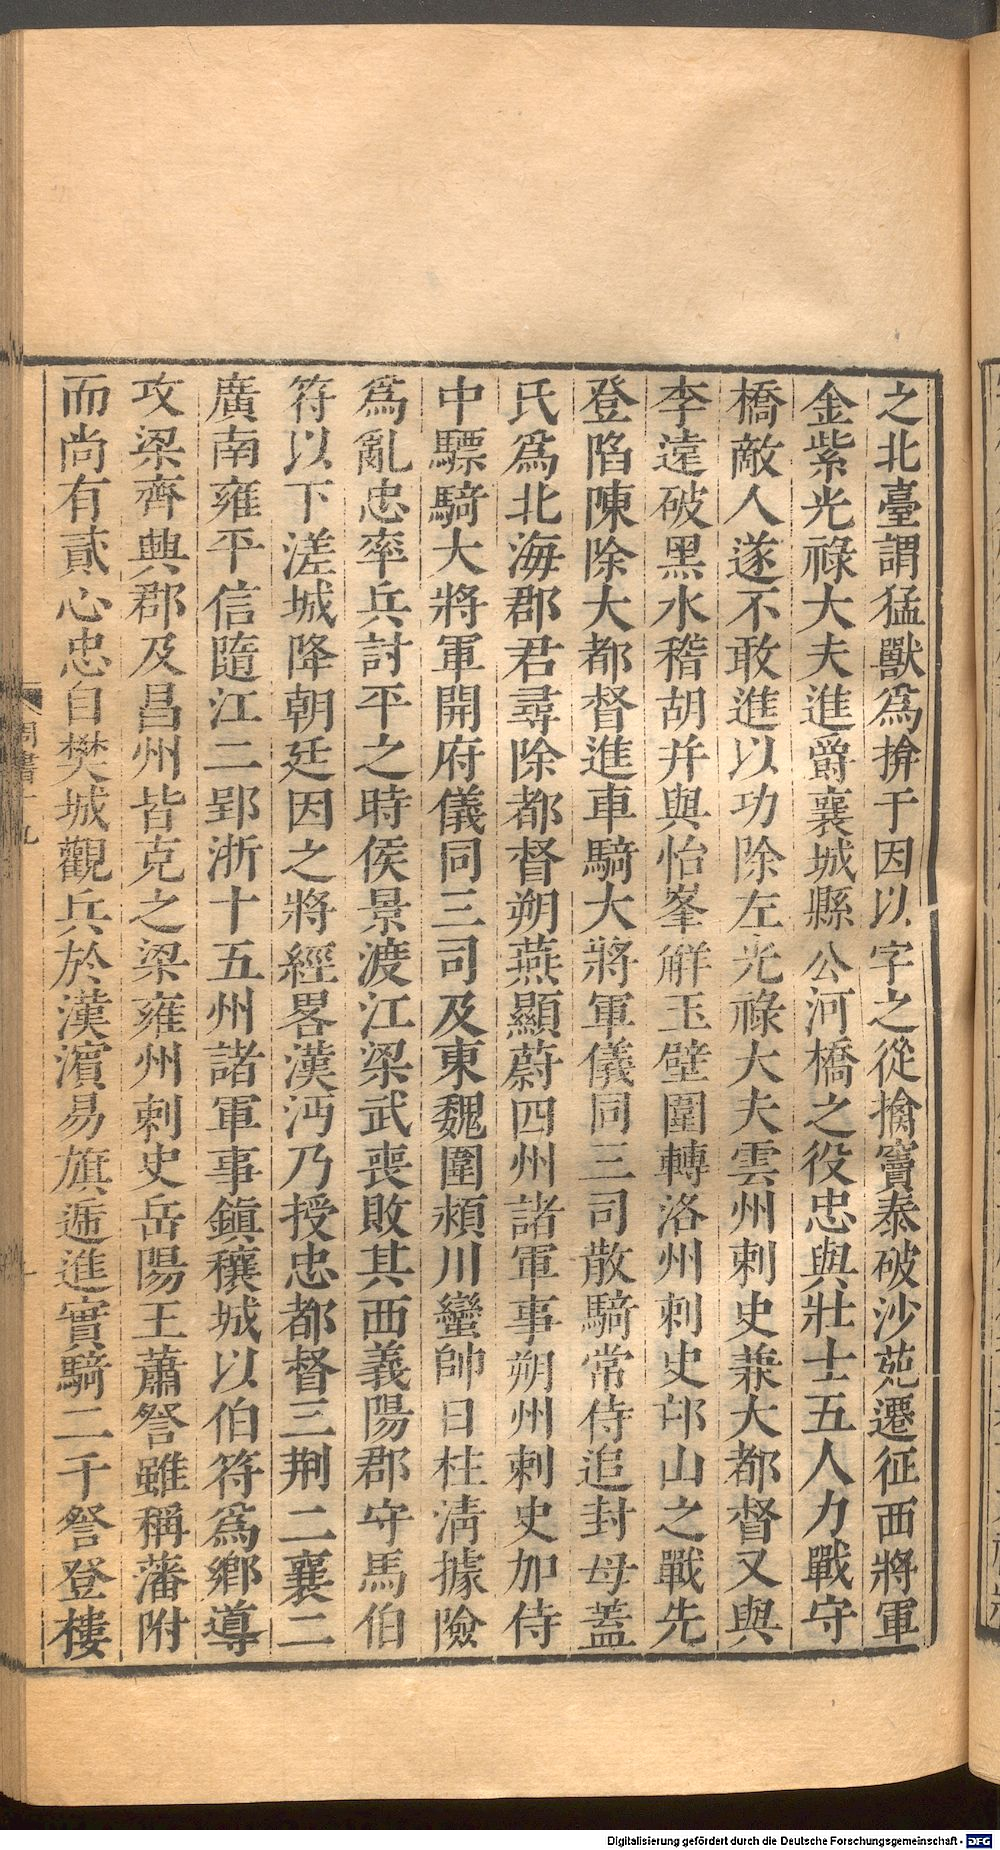 之北臺謂猛獸爲揜于因以字之從擒竇泰破沙苑遷征西將軍
金紫光祿大夫進爵襄城縣公河橋之役忠與壯士五人力戰守
橋敵人遂不敢進以功除左光祿大夫雲州刺史兼大都督又與
李遠破黑水稽胡并與怡峯解玉壁圍轉洛州刺史邙山之戰先
登陷陳除大都督進車騎大將軍儀同三司散騎常侍追封母蓋
氏爲北海郡君尋除都督朔燕顯蔚四州諸軍事朔州刺史加侍
中驃騎大將軍開府儀同三司及東魏圍潁川蠻帥田柱淸據險
爲亂忠率兵討平之時侯景渡江梁武喪敗其西義陽郡守馬伯
符以下溠城降朝廷因之將經畧漢沔乃授忠都督三荆二襄二
廣南雍平信隨江二郢淅十五州諸軍事鎭穰城以伯符爲鄉導
攻梁齊興郡及昌州皆克之梁雍州刺史岳陽王蕭詧雖稱藩附
而尚有貳心忠自樊城觀兵於漢濱易旗遞進實騎二千詧登樓
周書十九
Digitalisierung gefördert durch die Deutsche Forschungsgemeinschaft - DFG